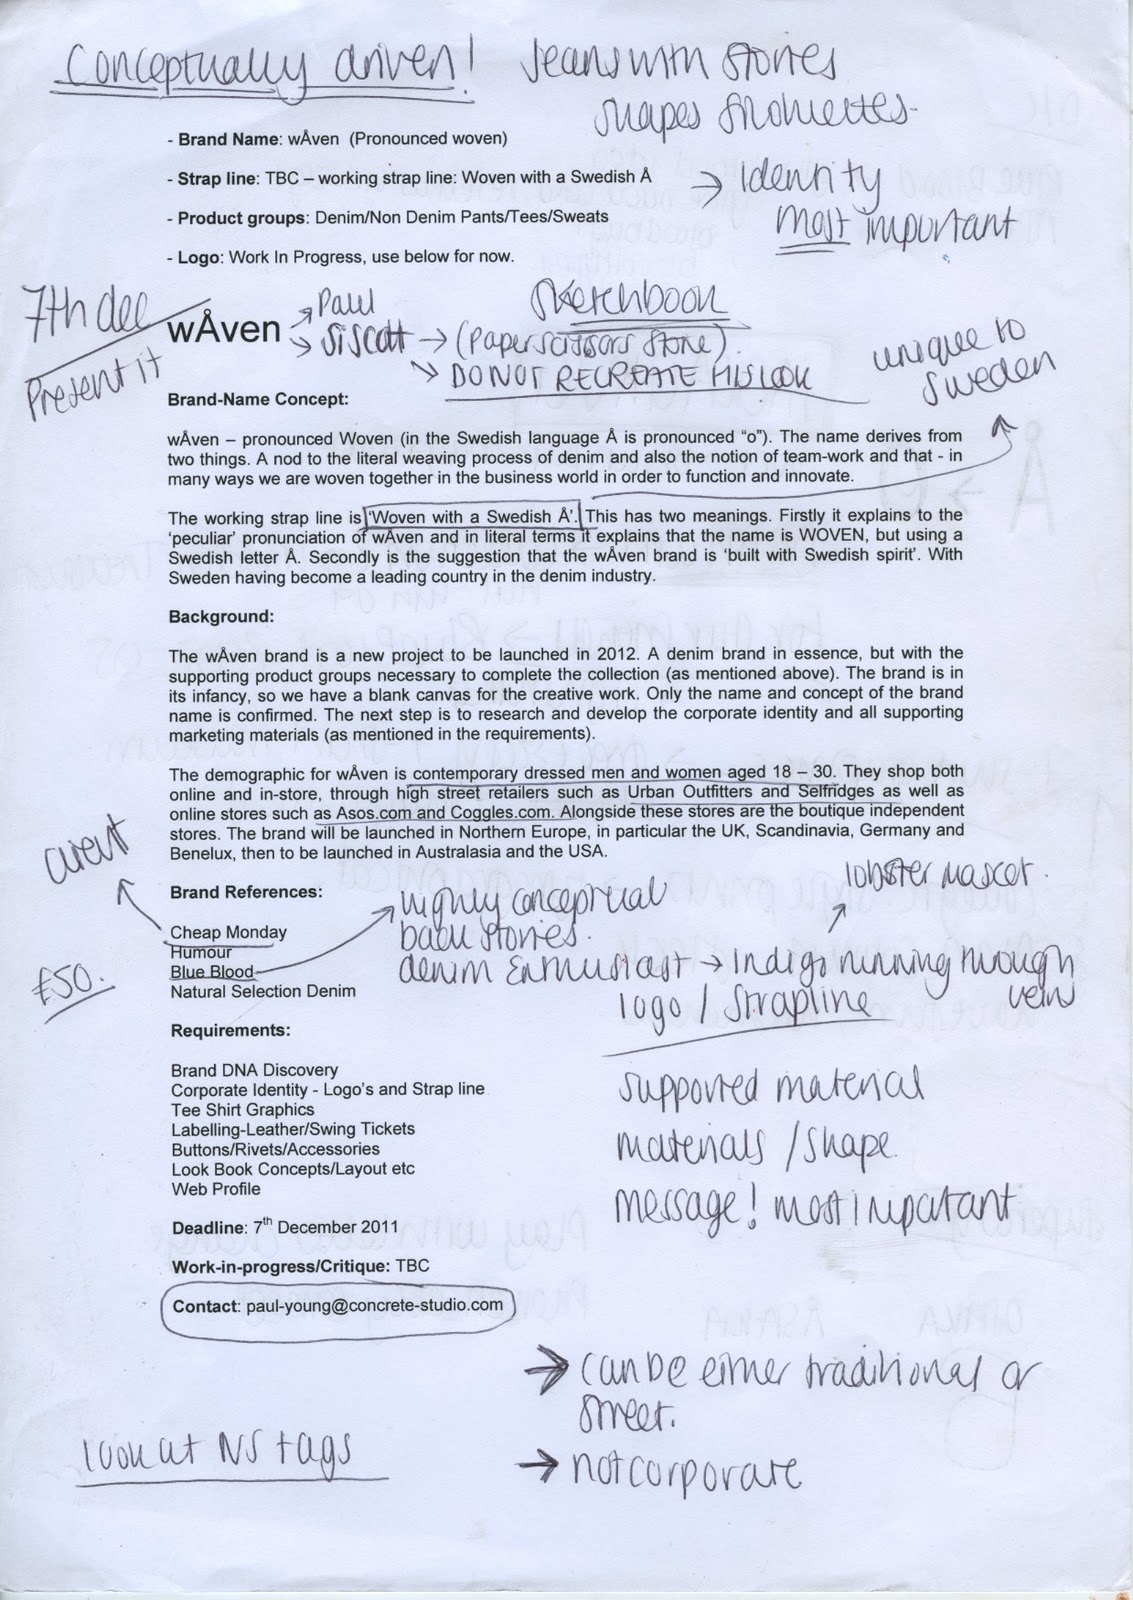 Conceptually driven! Jeans with stories
shapes silhouettes.
- Brand Name: wÅven (Pronounced woven)
- Strap line: TBC – working strap line: Woven with a Swedish Å
→ Identity
most important
- Product groups: Denim/Non Denim Pants/Tees/Sweats
- Logo: Work In Progress, use below for now.
7th dec
Present it
wÅven
→ Paul
→ Si Scott → (Paper scissors stone)
Sketchbook
→ DO NOT RECREATE HIS LOOK
unique to
Sweden
Brand-Name Concept:
wÅven – pronounced Woven (in the Swedish language Å is pronounced “o”). The name derives from
two things. A nod to the literal weaving process of denim and also the notion of team-work and that - in
many ways we are woven together in the business world in order to function and innovate.
The working strap line is ‘Woven with a Swedish Å’. This has two meanings. Firstly it explains to the
‘peculiar’ pronunciation of wÅven and in literal terms it explains that the name is WOVEN, but using a
Swedish letter Å. Secondly is the suggestion that the wÅven brand is ‘built with Swedish spirit’. With
Sweden having become a leading country in the denim industry.
Background:
The wÅven brand is a new project to be launched in 2012. A denim brand in essence, but with the
supporting product groups necessary to complete the collection (as mentioned above). The brand is in
its infancy, so we have a blank canvas for the creative work. Only the name and concept of the brand
name is confirmed. The next step is to research and develop the corporate identity and all supporting
marketing materials (as mentioned in the requirements).
The demographic for wÅven is contemporary dressed men and women aged 18 – 30. They shop both
online and in-store, through high street retailers such as Urban Outfitters and Selfridges as well as
online stores such as Asos.com and Coggles.com. Alongside these stores are the boutique independent
stores. The brand will be launched in Northern Europe, in particular the UK, Scandinavia, Germany and
Benelux, then to be launched in Australasia and the USA.
Brand References:
Cheap Monday
Humour
Blue Blood
Natural Selection Denim
£50.
highly conceptual
back stories.
denim Enthusiast → Indigo running through
veins
lobster mascot.
logo / Strapline
Requirements:
Brand DNA Discovery
Corporate Identity - Logo's and Strap line
Tee Shirt Graphics
Labelling-Leather/Swing Tickets
Buttons/Rivets/Accessories
Look Book Concepts/Layout etc
Web Profile
supported material
materials / shape
message! most important
Deadline: 7th December 2011
Work-in-progress/Critique: TBC
Contact: paul-young@concrete-studio.com
→ can be either traditional or
street.
→ not corporate
look at NS tags